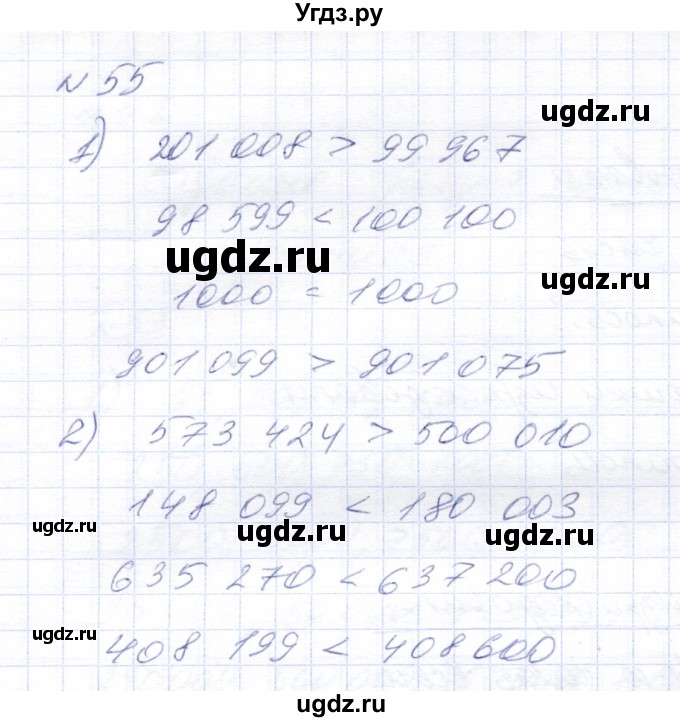 Угдз.ру
№ 55
ugdz.ru
1) 201 008 > 99 967
98 599 < 100 100
ugdz.ru
ugdz.ru
1000 = 1000
901 099 > 901 075
2) 573 424 > 500 010
148 099 < 180 003
ugdz.ru
ugdz.ru
ugdz.ru
635 270 < 637 200
ugdz.ru
408 199 < 408 600
ugdz.ru